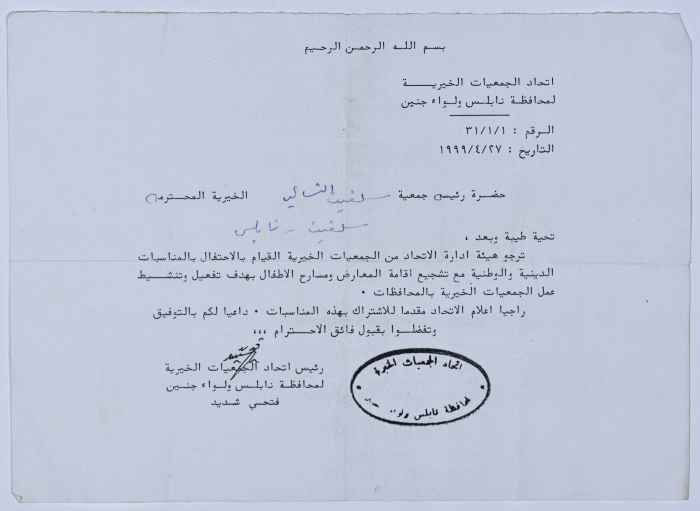 بسم الله الرحمن الرحيم
اتحاد الجمعيات الخيريــة
لمحافظة نابلس ولواء جنين
الرقم : ٣١/١/١
التاريخ : ١٩٩٩/٤/٢٧
حضرة رئيسه جمعية سلفيت النسائي الخيرية المحترمه
سلفيت - نابلس
تحية طيبة وبعد ،
ترجو هيئة ادارة الاتحاد من الجمعيات الخيرية القيام بالاحتفال بالمناسبات
الدينية والوطنية مع تشجيع اقامة المعارض ومسارح الاطفال بهدف تفعيل وتنشيط
عمل الجمعيات الخيرية بالمحافظات ٠
راجيا اعلام الاتحاد مقدما للاشتراك بهذه المناسبات ٠ داعيا لكم بالتوفيق
وتفضلوا بقبول فائق الاحترام ،،،
رئيس اتحاد الجمعيات الخيرية
لمحافظة نابلس ولواء جنين
فتحي شديد
اتحاد الجمعيات الخيرية
لمحافظة نابلس ولواء